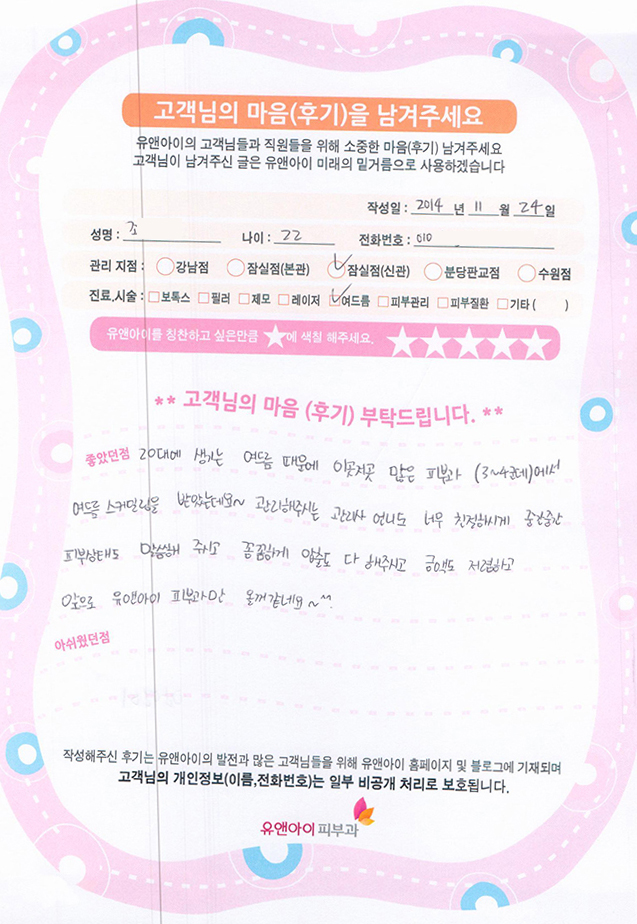 고객님의 마음(후기)을 남겨주세요
유앤아이의 고객님들과 직원들을 위해 소중한 마음(후기) 남겨주세요
고객님이 남겨주신 글은 유앤아이 미래의 밑거름으로 사용하겠습니다
작성일 : 2014 년 11 월 24 일
성명 : 조 나이 : 22 전화번호 : 010
관리 지점 : 강남점 잠실점(본관) 잠실점(신관) 분당판교점 수원점
진료,시술 : 보톡스 필러 제모 레이저 여드름 피부관리 피부질환 기타 ( )
유앤아이를 칭찬하고 싶은만큼 ★에 색칠 해주세요. ★★★★★
** 고객님의 마음 (후기) 부탁드립니다. **
좋았던점 20대에 생기는 여드름 때문에 이곳저곳 많은 피부과 (3~4군데)에서
여드름 스케일링을 받았는데요~ 관리해주시는 관리사 언니도 너무 친절하시게 중간중간
피부상태도 말씀해 주시고 꼼꼼하게 압출도 다 해주시고 금액도 저렴하고
앞으로 유앤아이 피부과만 올꺼같네요~^^
아쉬웠던점
작성해주신 후기는 유앤아이의 발전과 많은 고객님들을 위해 유앤아이 홈페이지 및 블로그에 기재되며
고객님의 개인정보(이름,전화번호)는 일부 비공개 처리로 보호됩니다.
유앤아이피부과